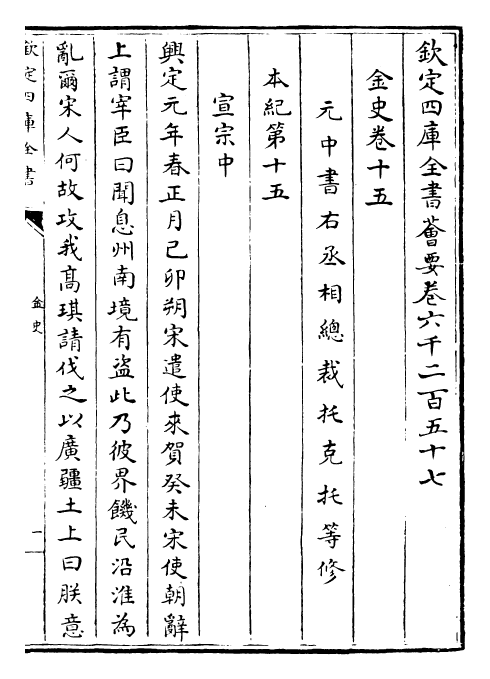 欽定四庫全書薈要卷六千二百五十七
金史卷十五
元中書右丞相總裁托克托等修
本紀第十五
宣宗中
興定元年春正月己卯朔宋遣使來賀癸未宋使朝辭
上謂宰臣曰聞息州南境有盜此乃彼界饑民沿淮為
亂爾宋人何故攻我高琪請伐之以廣疆土上曰朕意
欽定四庫全書
金史
一